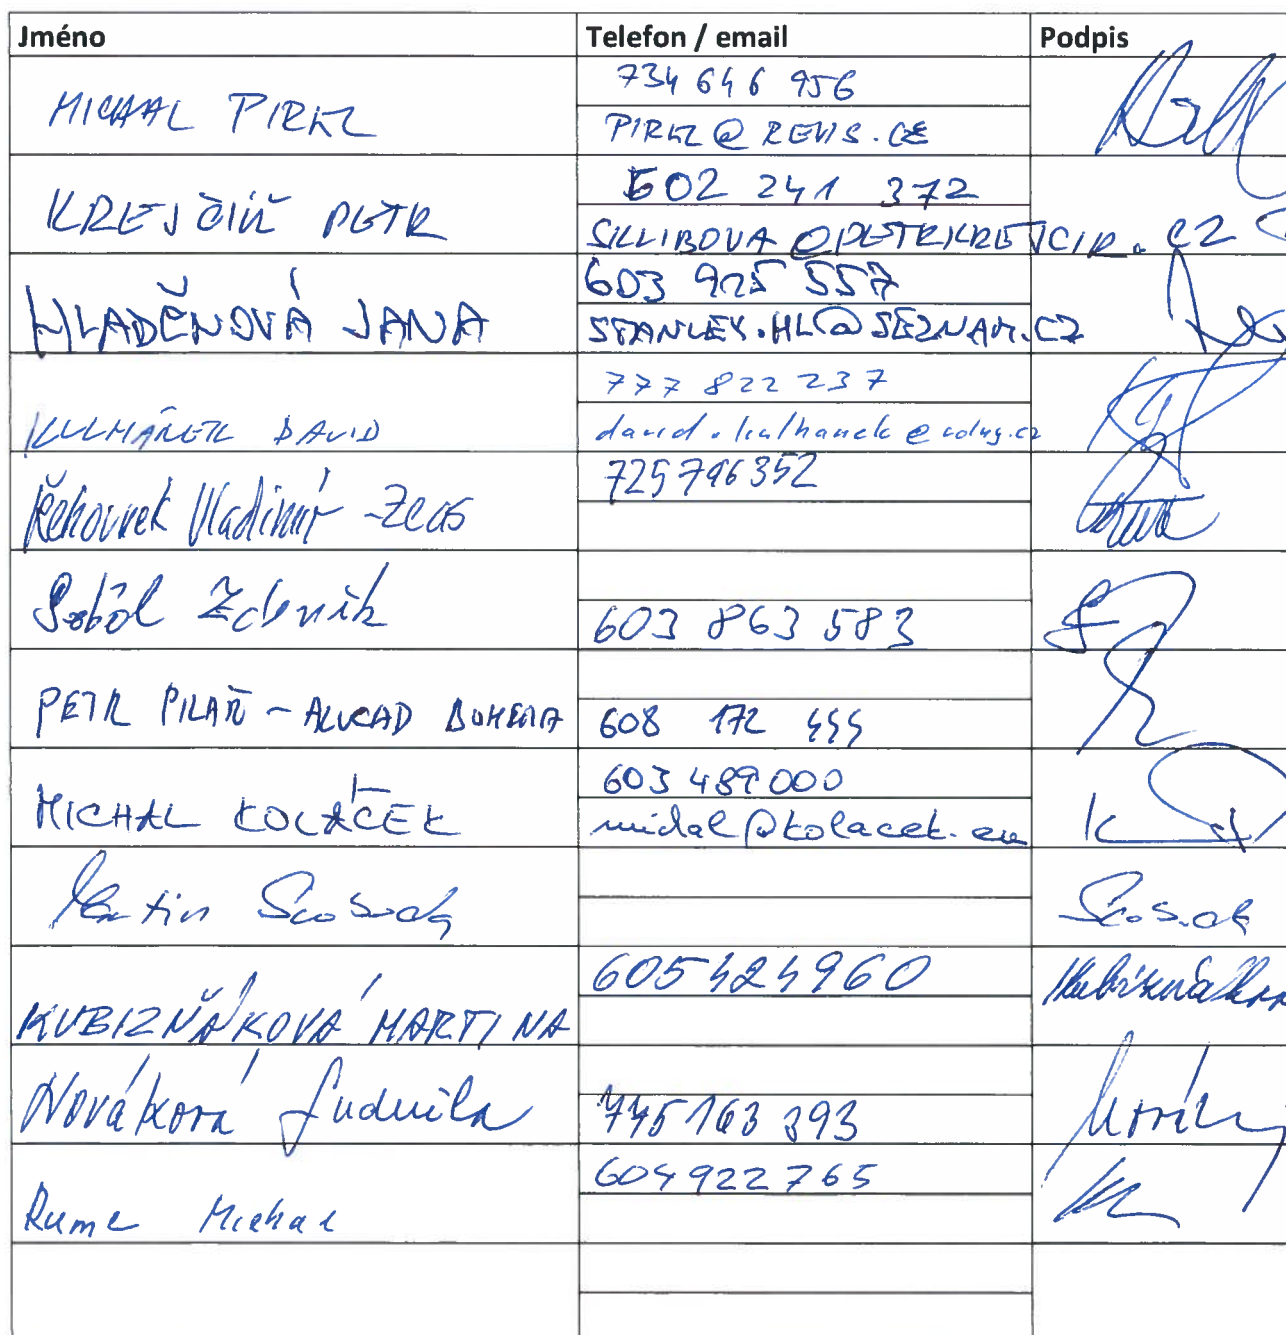 Jméno Telefon / email Podpis
MICHAL PIRKL 734 646 956
PIRKL@REVIS.CZ
KREJČIŘ PETR 602 241 372
SILLIBOVA@PETRKREJCIR.CZ
HLADĚNOVÁ JANA 603 925 557
STANLEY.HL@SEZNAM.CZ
KULHÁNEK DAVID 777 822 237
david.kulhanek@
Řehounek Vladimír - 725 796 352
Zdeněk 603 863 583
PETR PILAŘ - ALUCAD BOHEMIA 608 172 444
MICHAL KOLÁČEK 603 489 000
michal@kolacek.eu
Martin Svoboda
KUBIZŇÁKOVÁ MARTINA 605 424 960 Kubizňáková
Nováková Ludmila 745 163 393
Michal 604 922 765